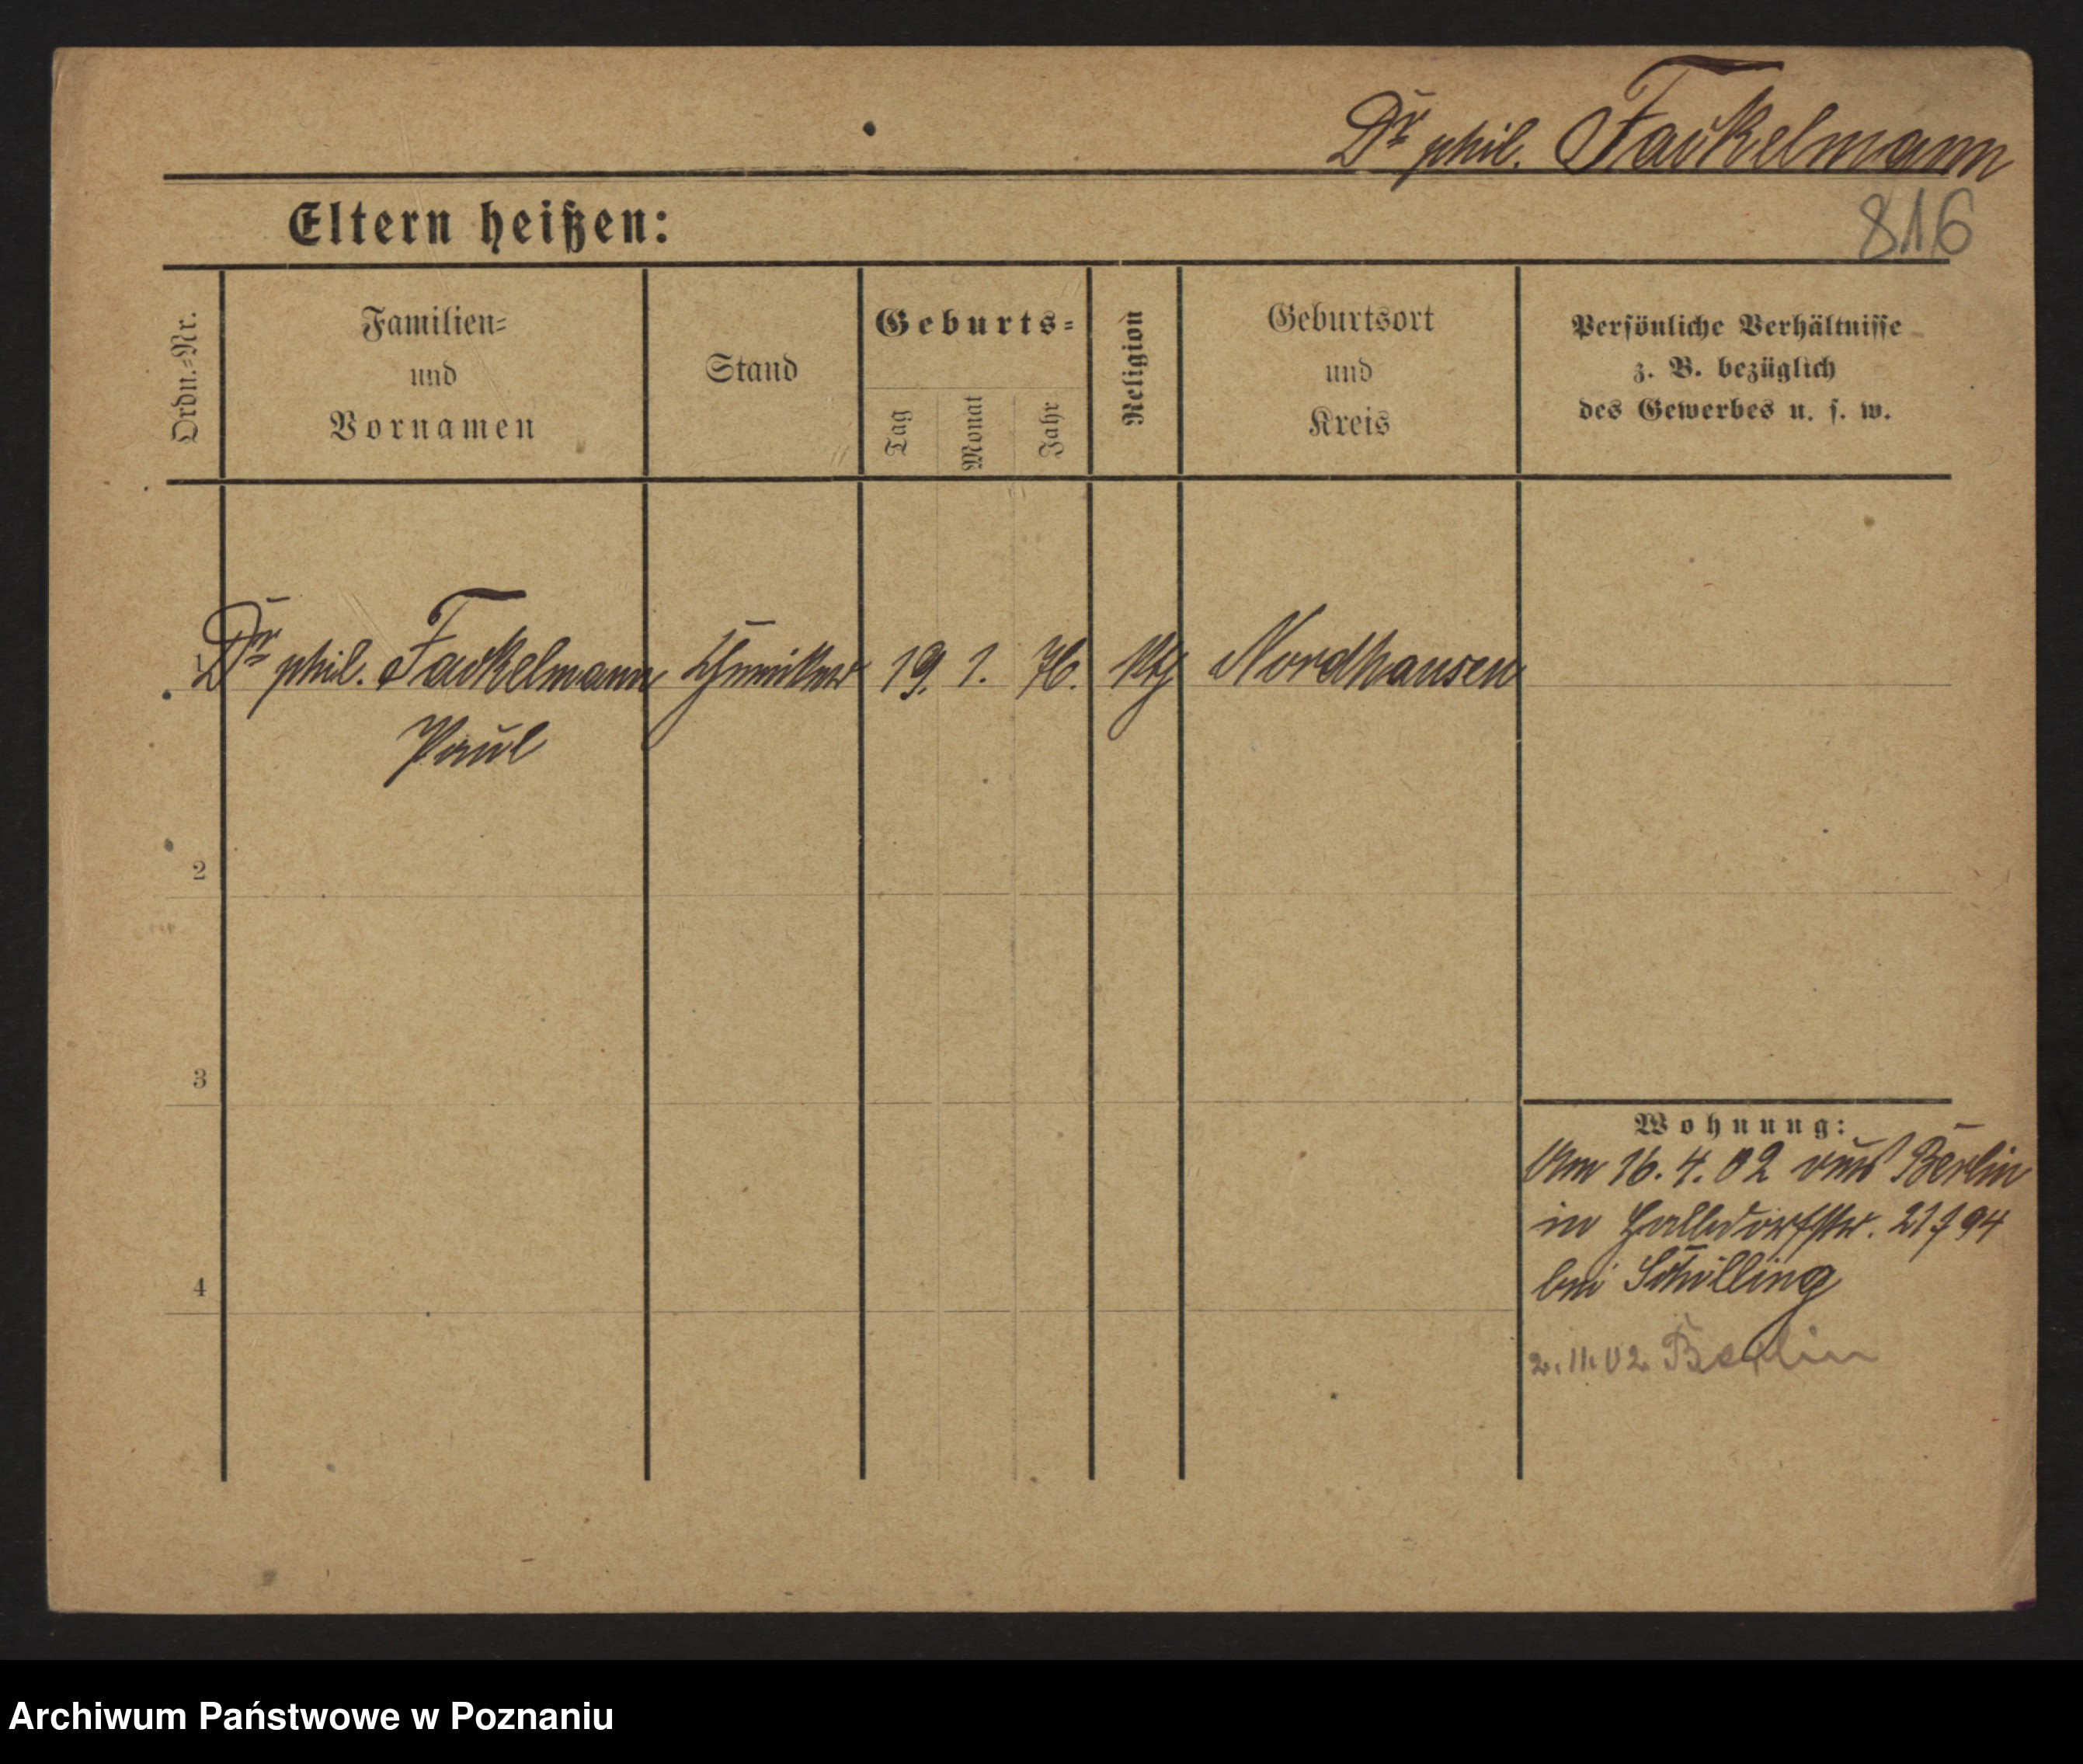 Dr phil. Fackelmann
Eltern heißen:
816
Ordn.=Nr.
Familien=
und
Vornamen
Stand
Geburts=
Tag
Monat
Jahr
Religion
Geburtsort
und
Kreis
Persönliche Verhältnisse
z. B. bezüglich
des Gewerbes u. s. w.
1 Dr phil. Fackelmann Chemiker 19. 1. 76. Nordhausen
Paul
2
3
4
Wohnung:
Am 16.4.02 aus Berlin
in 94
bei Schilling
2.11.02 Berlin
Archiwum Państwowe w Poznaniu